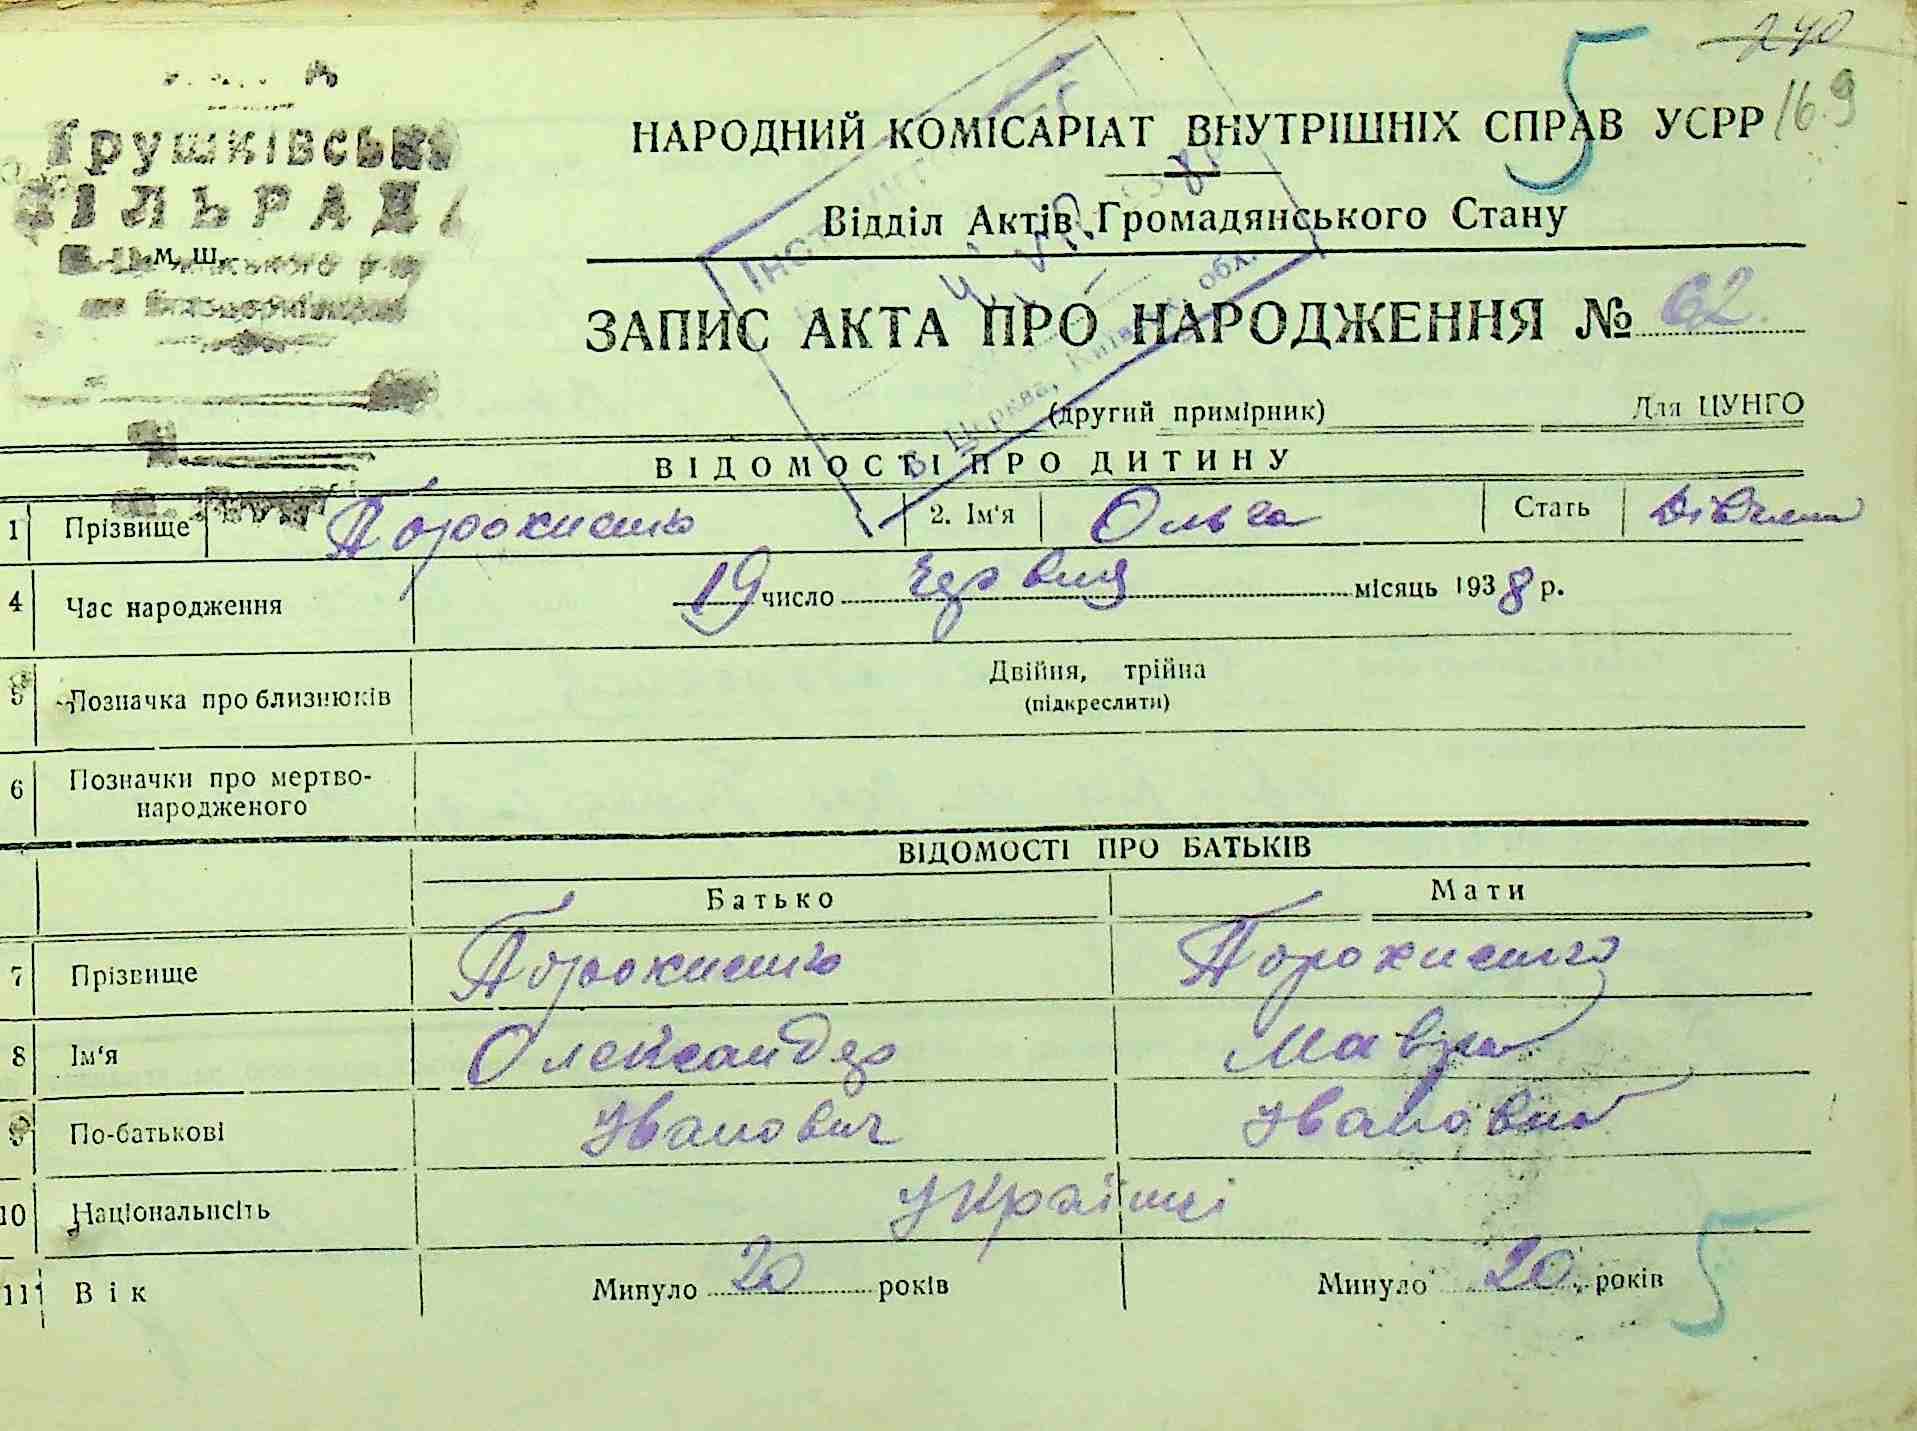 240
5
169
Грушківська
СІЛЬРАДА
м. ш.
НАРОДНИЙ КОМІСАРІАТ ВНУТРІШНІХ СПРАВ УСРР
Відділ Актів Громадянського Стану
ЗАПИС АКТА ПРО НАРОДЖЕННЯ № 62
(другий примірник)
Для ЦУНГО
Церква, Київ обл.
ВІДОМОСТІ ПРО ДИТИНУ
1 Прізвище 2. Ім'я Ольга Стать
4 Час народження 19 число червня місяць 1938 р.
5 Позначка про близнюків Двійня, трійна
(підкреслити)
6 Позначки про мертво-
народженого
ВІДОМОСТІ ПРО БАТЬКІВ
Батько Мати
7 Прізвище
8 Ім'я Олександер Мавра
9 По-батькові Іванович Івановна
10 Національнсіть Українці
11 Вік Минуло 20 років Минуло 20 років
5